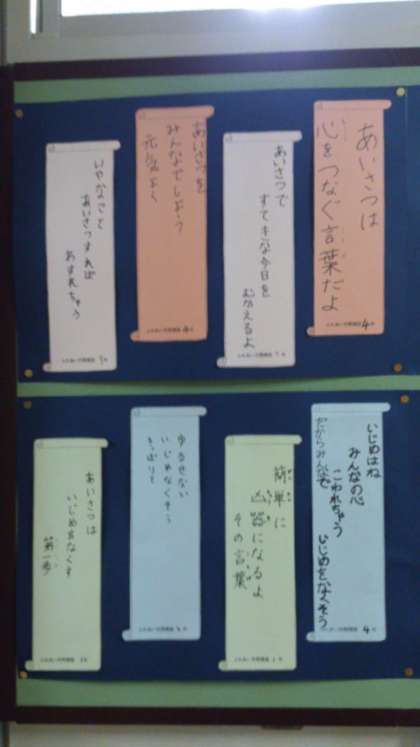 あいさつは
心をつなぐ言葉だよ
4年
あいさつで
すてキな今日を
むかえるよ
あいさつを
みんなでしよう
元気よく
いやなこと
あいさつすれば
わすれちゃう
いじめはね
みんなの心
こわれちゃう
だからみんなで
いじめをなくそう
4年
簡単に
凶器になるよ
その言葉
ゆるせない
いじめなくそう
きっぱりと
あいさつは
いじめをなくす
第一歩